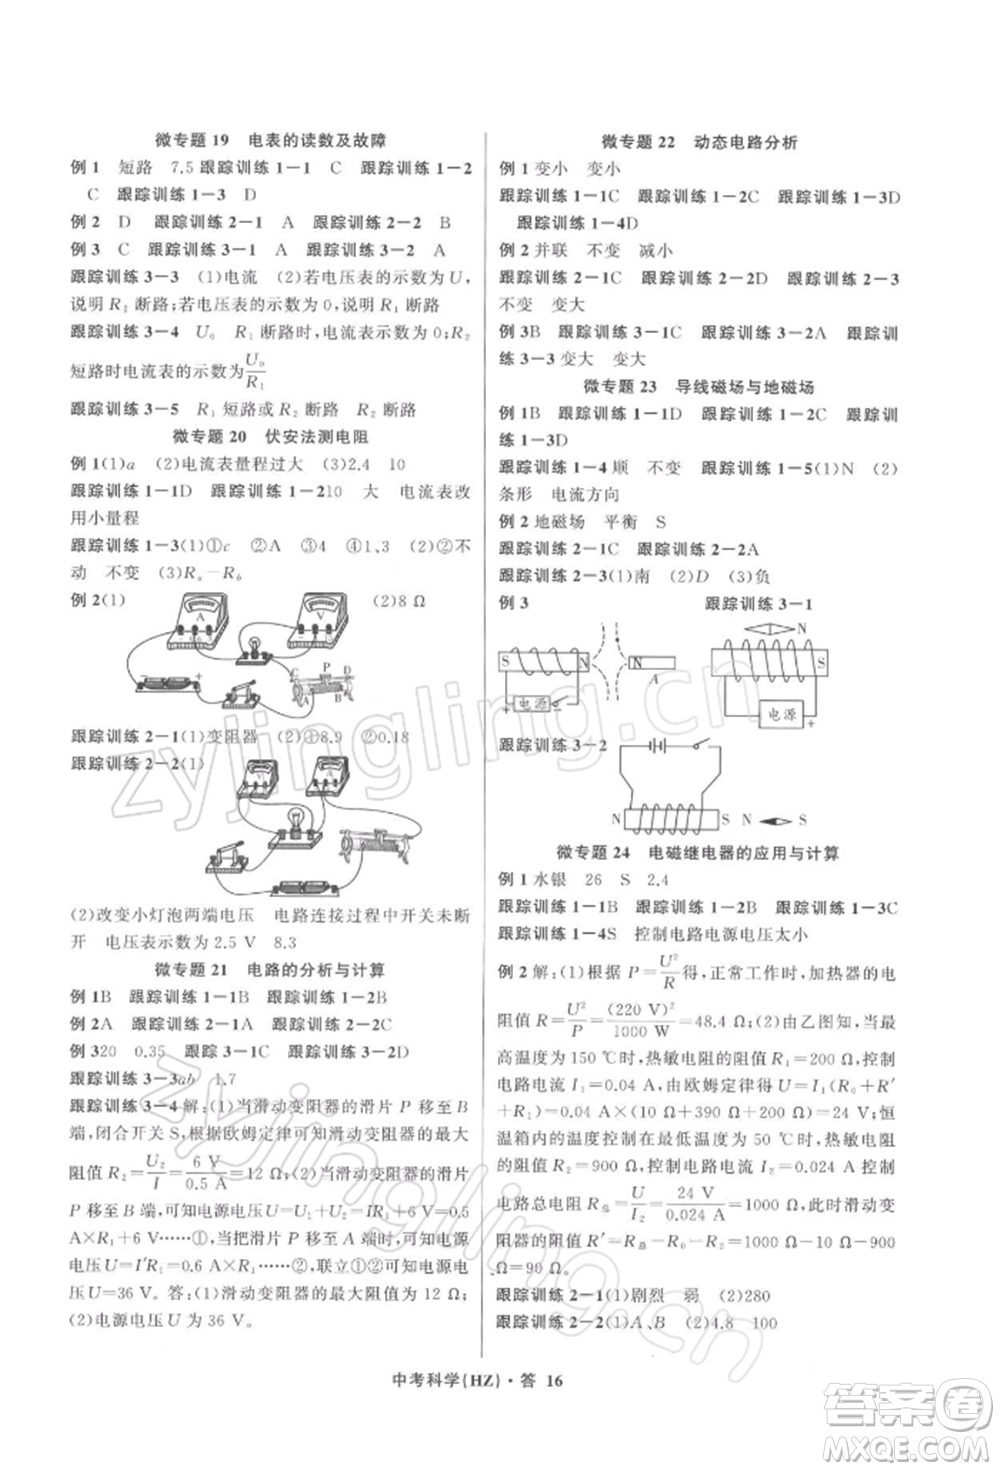 微专题 19 电表的读数及故障
例 1 短路 7.5 跟踪训练 1-1 C 跟踪训练 1-2
C 跟踪训练 1-3 D
例 2 D 跟踪训练 2-1 A 跟踪训练 2-2 B
例 3 C 跟踪训练 3-1 A 跟踪训练 3-2 A
跟踪训练 3-3 (1)电流 (2)若电压表的示数为 U,
说明 R₂ 断路;若电压表的示数为 0,说明 R₁ 断路
跟踪训练 3-4 U₀ R₁ 断路时,电流表示数为 0;R₂
短路时电流表的示数为 U₀/R₁
跟踪训练 3-5 R₁ 短路或 R₂ 断路 R₂ 断路
微专题 20 伏安法测电阻
例 1(1)a (2)电流表量程过大 (3)2.4 10
跟踪训练 1-1D 跟踪训练 1-210 大 电流表改
用小量程
跟踪训练 1-3(1)①c ②A ④1、3 (2)②不
动 不变 (3)Rₐ-R_b
例 2(1) (2)8 Ω
A V
C P D
A B
- +
跟踪训练 2-1(1)变阻器 (2)①8.9 ②0.18
跟踪训练 2-2(1)
(2)改变小灯泡两端电压 电路连接过程中开关未断
开 电压表示数为 2.5 V 8.3
微专题 21 电路的分析与计算
例 1B 跟踪训练 1-1B 跟踪训练 1-2B
例 2A 跟踪训练 2-1A 跟踪训练 2-2C
例 320 0.35 跟踪 3-1C 跟踪训练 3-2D
跟踪训练 3-3ab 1.7
跟踪训练 3-4 解:(1)当滑动变阻器的滑片 P 移至 B
端,闭合开关 S,根据欧姆定律可知滑动变阻器的最大
阻值 R₂=U₂/I=6 V/0.5 A=12 Ω;(2)当滑动变阻器的滑片
P 移至 B 端,可知电源电压 U=U₁+U₂=IR₁+6 V=0.5
A×R₁+6 V……①,当把滑片 P 移至 A 端时,可知电源
电压 U=I′R₁=0.6 A×R₁……②,联立①②可知电源电
压 U=36 V。答:(1)滑动变阻器的最大阻值为 12 Ω;
(2)电源电压 U 为 36 V。
微专题 22 动态电路分析
例 1变小 变小
跟踪训练 1-1C 跟踪训练 1-2C 跟踪训练 1-3D
跟踪训练 1-4D
例 2并联 不变 减小
跟踪训练 2-1C 跟踪训练 2-2D 跟踪训练 2-3
不变 变大
例 3B 跟踪训练 3-1C 跟踪训练 3-2A 跟踪训
练 3-3变大 变大
微专题 23 导线磁场与地磁场
例 1B 跟踪训练 1-1D 跟踪训练 1-2C 跟踪训
练 1-3D
跟踪训练 1-4顺 不变 跟踪训练 1-5(1)N (2)
条形 电流方向
例 2地磁场 平衡 S
跟踪训练 2-1C 跟踪训练 2-2A
跟踪训练 2-3(1)南 (2)D (3)负
例 3 跟踪训练 3-1
S N N A
电源
N
S N
电源
- +
跟踪训练 3-2
N S N S
微专题 24 电磁继电器的应用与计算
例 1水银 26 S 2.4
跟踪训练 1-1B 跟踪训练 1-2B 跟踪训练 1-3C
跟踪训练 1-4S 控制电路电源电压太小
例 2 解:(1)根据 P=U²/R得,正常工作时,加热器的电
阻值 R=U²/P=(220 V)²/1000 W=48.4 Ω;(2)由乙图知,当最
高温度为 150 ℃时,热敏电阻的阻值 R₁=200 Ω,控制
电路电流 I₁=0.04 A,由欧姆定律得 U=I₁(R₀+R′
+R₁)=0.04 A×(10 Ω+390 Ω+200 Ω)=24 V;当恒
温箱内的温度控制在最低温度为 50 ℃时,热敏电阻
的阻值 R₂=900 Ω,控制电路电流 I₂=0.024 A,控制
电路总电阻 R总=U/I₂=24 V/0.024 A=1000 Ω,此时滑动变
阻器的阻值 R′=R总-R₀-R₂=1000 Ω-10 Ω-900
Ω=90 Ω。
跟踪训练 2-1(1)剧烈 弱 (2)280
跟踪训练 2-2(1)A、B (2)4.8 100
中考科学(HZ)·答 16
zyjingling.cn
zyjingling.cn
答案卷
MXQE.COM